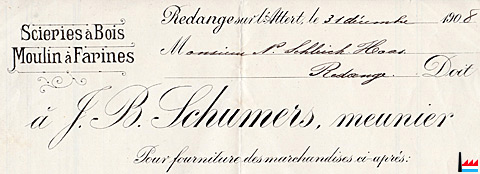 Scieries à Bois
Moulin à Farines
Redange sur l'Attert, le 31 décembre 1908
Monsieur N. Schleich Haas
Redange. Doit
à J.-B. Schumers, meunier
Pour fourniture des marchandises ci-après: